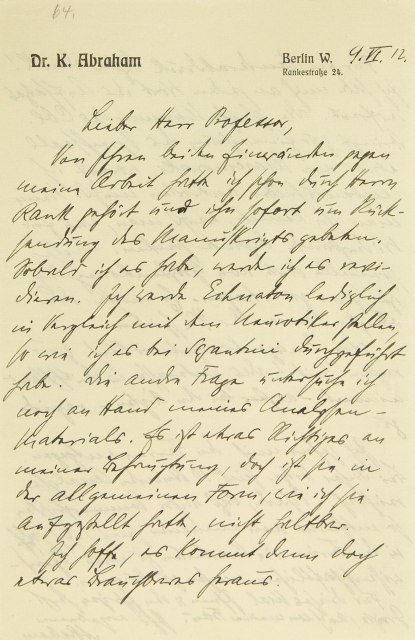 64.
Dr. K. Abraham
Berlin W. 9. VI. 12.
Rankestraße 24.
Lieber Herr Professor,
Von Ihren beiden Einwänden gegen
meine Arbeit hatte ich schon durch Herrn
Rank gehört und ihn sofort um Rück-
sendung des Manuskripts gebeten.
Sobald ich es habe, werde ich es revi-
dieren. Ich werde Echnaton lediglich
in Vergleich mit dem Neurotiker stellen,
so wie ich es bei Segantini durchgeführt
habe. Die andre Frage untersuche ich
noch an Hand meines Analysen-
Materials. Es ist etwas Richtiges an
meiner Behauptung, doch ist sie in
der allgemeinen Form, wie ich sie
aufgestellt hatte, nicht haltbar.
Ich hoffe, es kommt dann doch
etwas Brauchbares heraus.